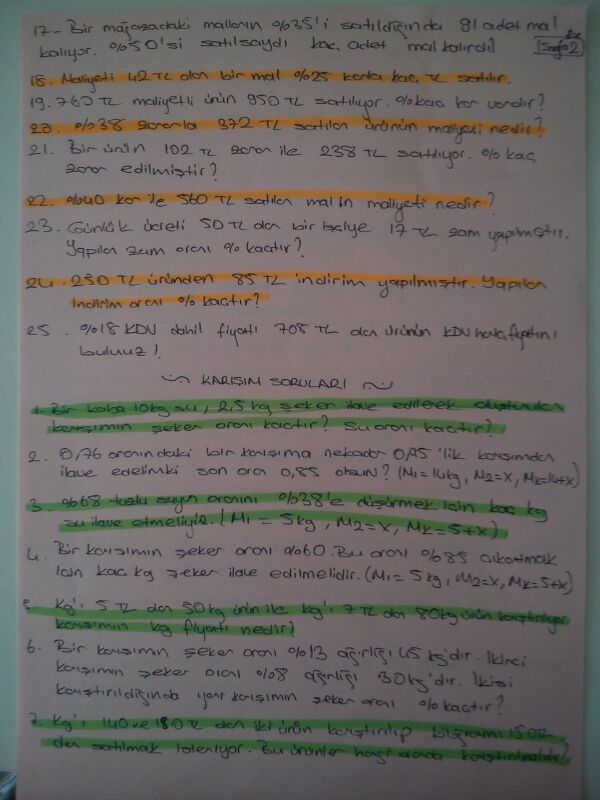 17- Bir mağazadaki malların %35'i satıldığında 91 adet mal
kalıyor. %50'si satılsaydı kaç adet mal kalırdı? (Sayfa 2)
18. Maliyeti 42 TL olan bir mal %25 karla kaç TL satılır.
19. 760 TL maliyetli ürün 950 TL satılıyor. %kaç kar vardır?
20. %38 zararla 372 TL satılan ürünün maliyeti nedir?
21. Bir ürün 102 TL zarar ile 238 TL satılıyor. % kaç
zarar edilmiştir?
22. %40 kar ile 560 TL satılan malın maliyeti nedir?
23. Günlük ücreti 50 TL olan bir işçiye 17 TL zam yapılmıştır.
Yapılan zam oranı % kaçtır?
24. 250 TL üründen 85 TL indirim yapılmıştır. Yapılan
indirim oranı % kaçtır?
25. %18 KDV dahil fiyatı 708 TL olan ürünün KDV hariç fiyatını
bulunuz!
KARIŞIM SORULARI
1. Bir kaba 10kg su, 2,5 kg şeker ilave edilerek oluşturulan
karışımın şeker oranı kaçtır? Su oranı kaçtır?
2. 0,76 oranındaki bir karışıma nekadar 0,95'lik karışımdan
ilave edelimki son oran 0,85 olsun? (M1=14kg, M2=X, MK=14+X)
3. %68 tuzlu suyun oranını %38'e düşürmek için kaç kg
su ilave etmeliyiz. (M1 = 5kg, M2=X, MK=5+X)
4. Bir karışımın şeker oranı %60. Bu oranı %85 çıkartmak
için kaç kg şeker ilave edilmelidir. (M1= 5kg, M2=X, MK=5+X)
5. Kg'ı 5 TL olan 50kg ürün ile kg'ı 7 TL olan 80kg ürün karıştırılıyor
karışımın kg fiyatı nedir?
6. Bir karışımın şeker oranı %13 ağırlığı 45 kg'dır. İkinci
karışımın şeker oranı %8 ağırlığı 30kg'dır. İkisi
karıştırıldığında yeni karışımın şeker oranı % kaçtır?
7. Kg'ı 140 ve 180 TL olan iki ürün karıştırılıp kilogramı 150TL
den satılmak isteniyor. Bu ürünler hangi oranda karıştırılmalıdır?